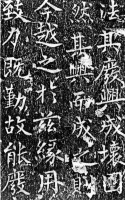 法其廢興成壞固
然其興而成之則
今越之於茲緣用
致力既勤故能嚴